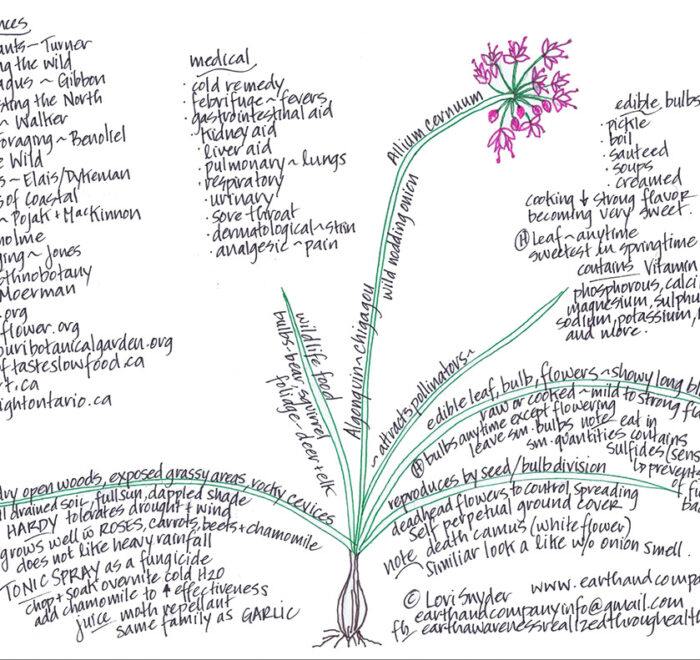 nces
ants~Turner
ng the wild
agus ~ Gibbon
sting the North
~ Walker
foraging ~ Benoliel
e Wild
s ~ Elais/Dykeman
s of Coastal
~ Pojak + MacKinnon
nolme
ging ~ Jones
ethnobotany
Moerman
.org
flower.org
ouribotanicalgarden.org
oftasteslowfood.ca
rt.ca
ightontario.ca
medical
· cold remedy
· febrifuge ~ fevers
· gastrointestinal aid
· kidney aid
· liver aid
· pulmonary ~ lungs
· respiratory
· urinary
· sore throat
· dermatological ~ skin
· analgesic ~ pain
Allium cernuum
wild nodding onion
Algonquin ~ chigagou
edible bulbs
· pickle
· boil
· sauteed
· soups
· creamed
cooking ↓ strong flavor
becoming very sweet.
Ⓗ Leaf ~ anytime
sweetest in springtime
contains vitamin
phosphorous, calci
magnesium, sulphu
sodium, potassium,
and more.
wildlife food
bulbs - bear, squirrel
foliage - deer + elk
~ attracts pollinators ~
edible leaf, bulb, flowers ~ showy long bl
raw or cooked ~ mild to strong fla
Ⓗ bulbs anytime except flowering
leave sm. bulbs note eat in
sm. quantities contains
sulfides (sens
↳ prevent
of f
ba
reproduces by seed/bulb division
deadhead flowers to control spreading
self perpetual ground cover
note death camus (white flower)
similiar look a like w/o onion smell.
dry open woods, exposed grassy areas, rocky cevices
ll drained soil, full sun, dappled shade
HARDY tolerates drought + wind
grows well w ROSES, carrots, beets + chamomile
does not like heavy rainfall
TONIC SPRAY as a fungicide
chop + soak overnite cold H2O
add chamomile to ↑ effectiveness
juice moth repellant
same family as GARLIC
© Lori Snyder www.earthandcompa
earthandcompanyinfo@gmail.com
fb earthawarenessrealizedthroughhealth